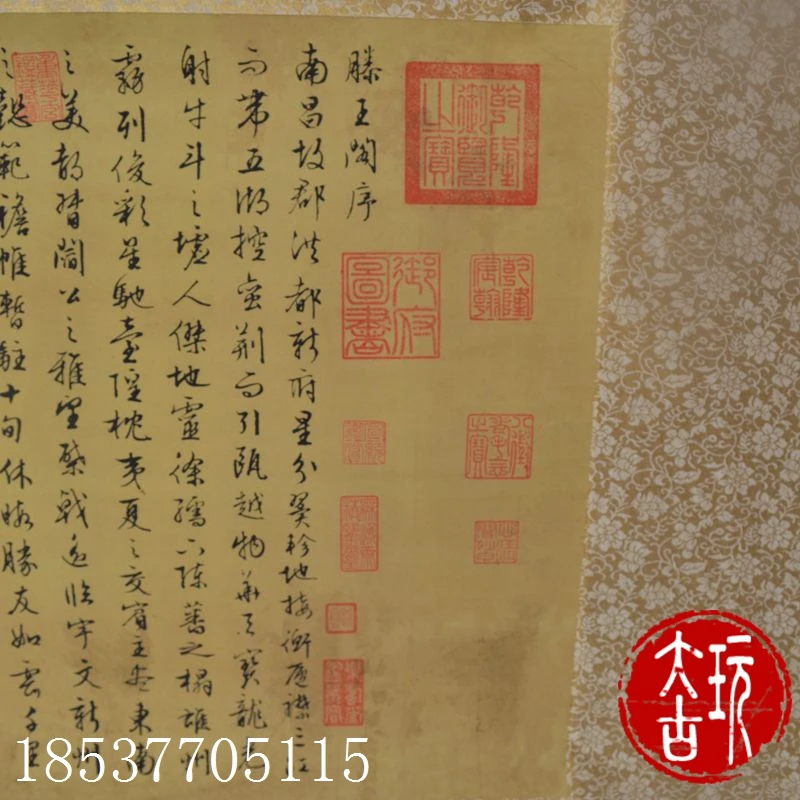 滕王閣序
南昌故郡洪都新府星分翼軫地接衡廬襟三江
而帶五湖控蠻荊而引甌越物華天寶龍光
射牛斗之墟人傑地靈徐孺下陳蕃之榻雄州
霧列俊彩星馳臺隍枕夷夏之交賓主盡東南
之美都督閻公之雅望棨戟遙臨宇文新州
之懿範襜帷暫駐十旬休暇勝友如雲千里
乾隆御覽之寶
乾隆宸翰
御府圖書
玩大古
18537705115